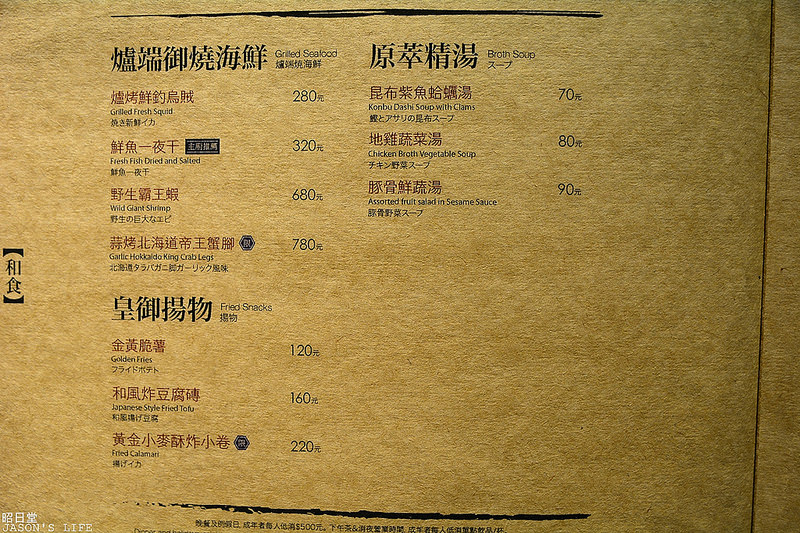 爐端御燒海鮮 Grilled Seafood
爐端燒海鮮
爐烤鮮釣烏賊 280元
Grilled Fresh Squid
焼き新鮮イカ
鮮魚一夜干 主廚推薦 320元
Fresh Fish Dried and Salted
鮮魚一夜干
野生霸王蝦 680元
Wild Giant Shrimp
野生の巨大なエビ
蒜烤北海道帝王蟹腳 限 780元
Garlic Hokkaido King Crab Legs
北海道タラバガニ脚ガーリック風味
皇御揚物 Fried Snacks
揚物
金黃脆薯 120元
Golden Fries
フライドポテト
和風炸豆腐磚 160元
Japanese Style Fried Tofu
和風揚げ豆腐
黃金小麥酥炸小卷 限 220元
Fried Calamari
揚げイカ
原萃精湯 Broth Soup
スープ
昆布紫魚蛤蠣湯 70元
Konbu Dashi Soup with Clams
鰹とアサリの昆布スープ
地雞蔬菜湯 80元
Chicken Broth Vegetable Soup
チキン野菜スープ
豚骨鮮蔬湯 90元
Assorted fruit salad in Sesame Sauce
豚骨野菜スープ
【和食】
晚餐及例假日, 成年者每人低消$500元。下午茶&消夜營業時間, 成年者每人低消單點飲品/杯.
昭日堂
JASON'S LIFE